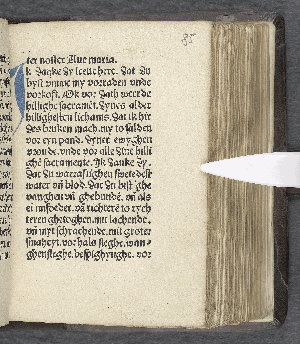 85
ter noster Aue maria.
k danke dy leue here. dat du
byst vmme my vorraden vnde
vorkoft. Ok vor dath werde
hillighe sacramēt. dynes alder
hillighesten lichams. dat ik hir
des bruken mach. my to salden
vor eyn pand. dyner ewyghen
vroude. vnde vor alle dine hilli
ghē sacramente. Ik danke dy.
dat du warraftighen swete dest
water vn̄ blod. dat du best ghe
vanghen vn̄ ghebundē. vn̄ als
ei misdoder. vn̄ richtere to rych
teren ghetoghen. mit lachende.
vn̄ myt schrachende. mit groter
smaheyt. vor hals sleghe. wan-
ghenslege. bespighynghe. vor